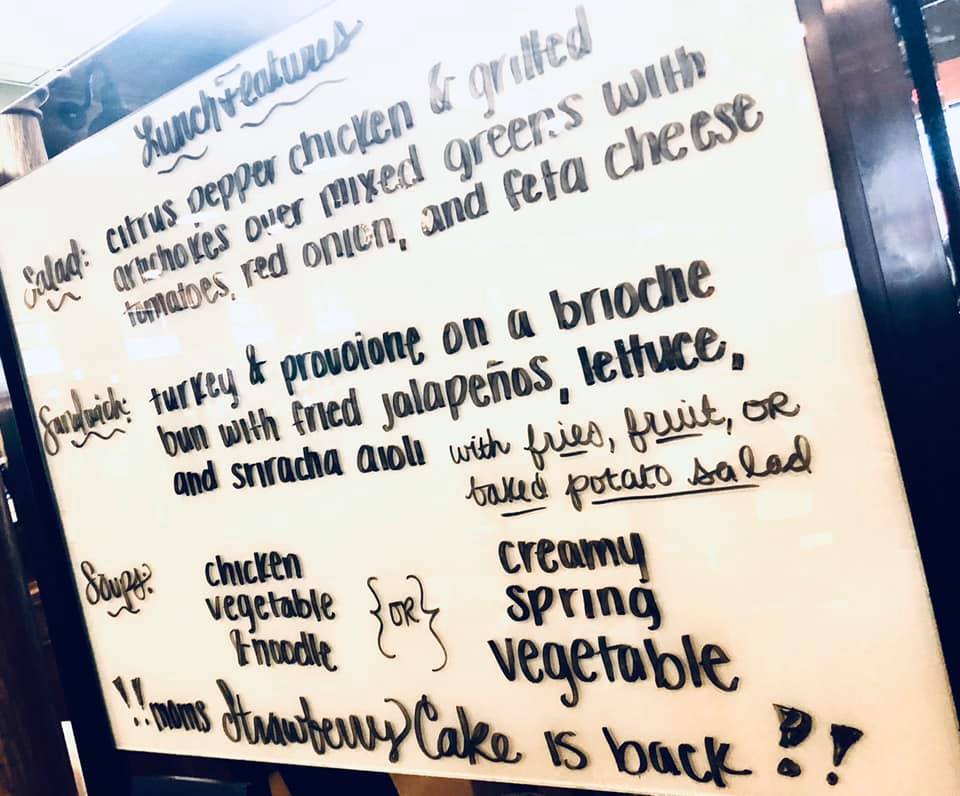 Lunch Features
Salad: citrus pepper chicken & grilled
artichokes over mixed greens with
tomatoes, red onion, and feta cheese
Sandwich: turkey & provolone on a brioche
bun with fried jalapeños, lettuce,
and sriracha aioli with fries, fruit, OR
baked potato salad
Soups: chicken vegetable & noodle {OR} creamy spring vegetable
!!moms Strawberry Cake is back!!